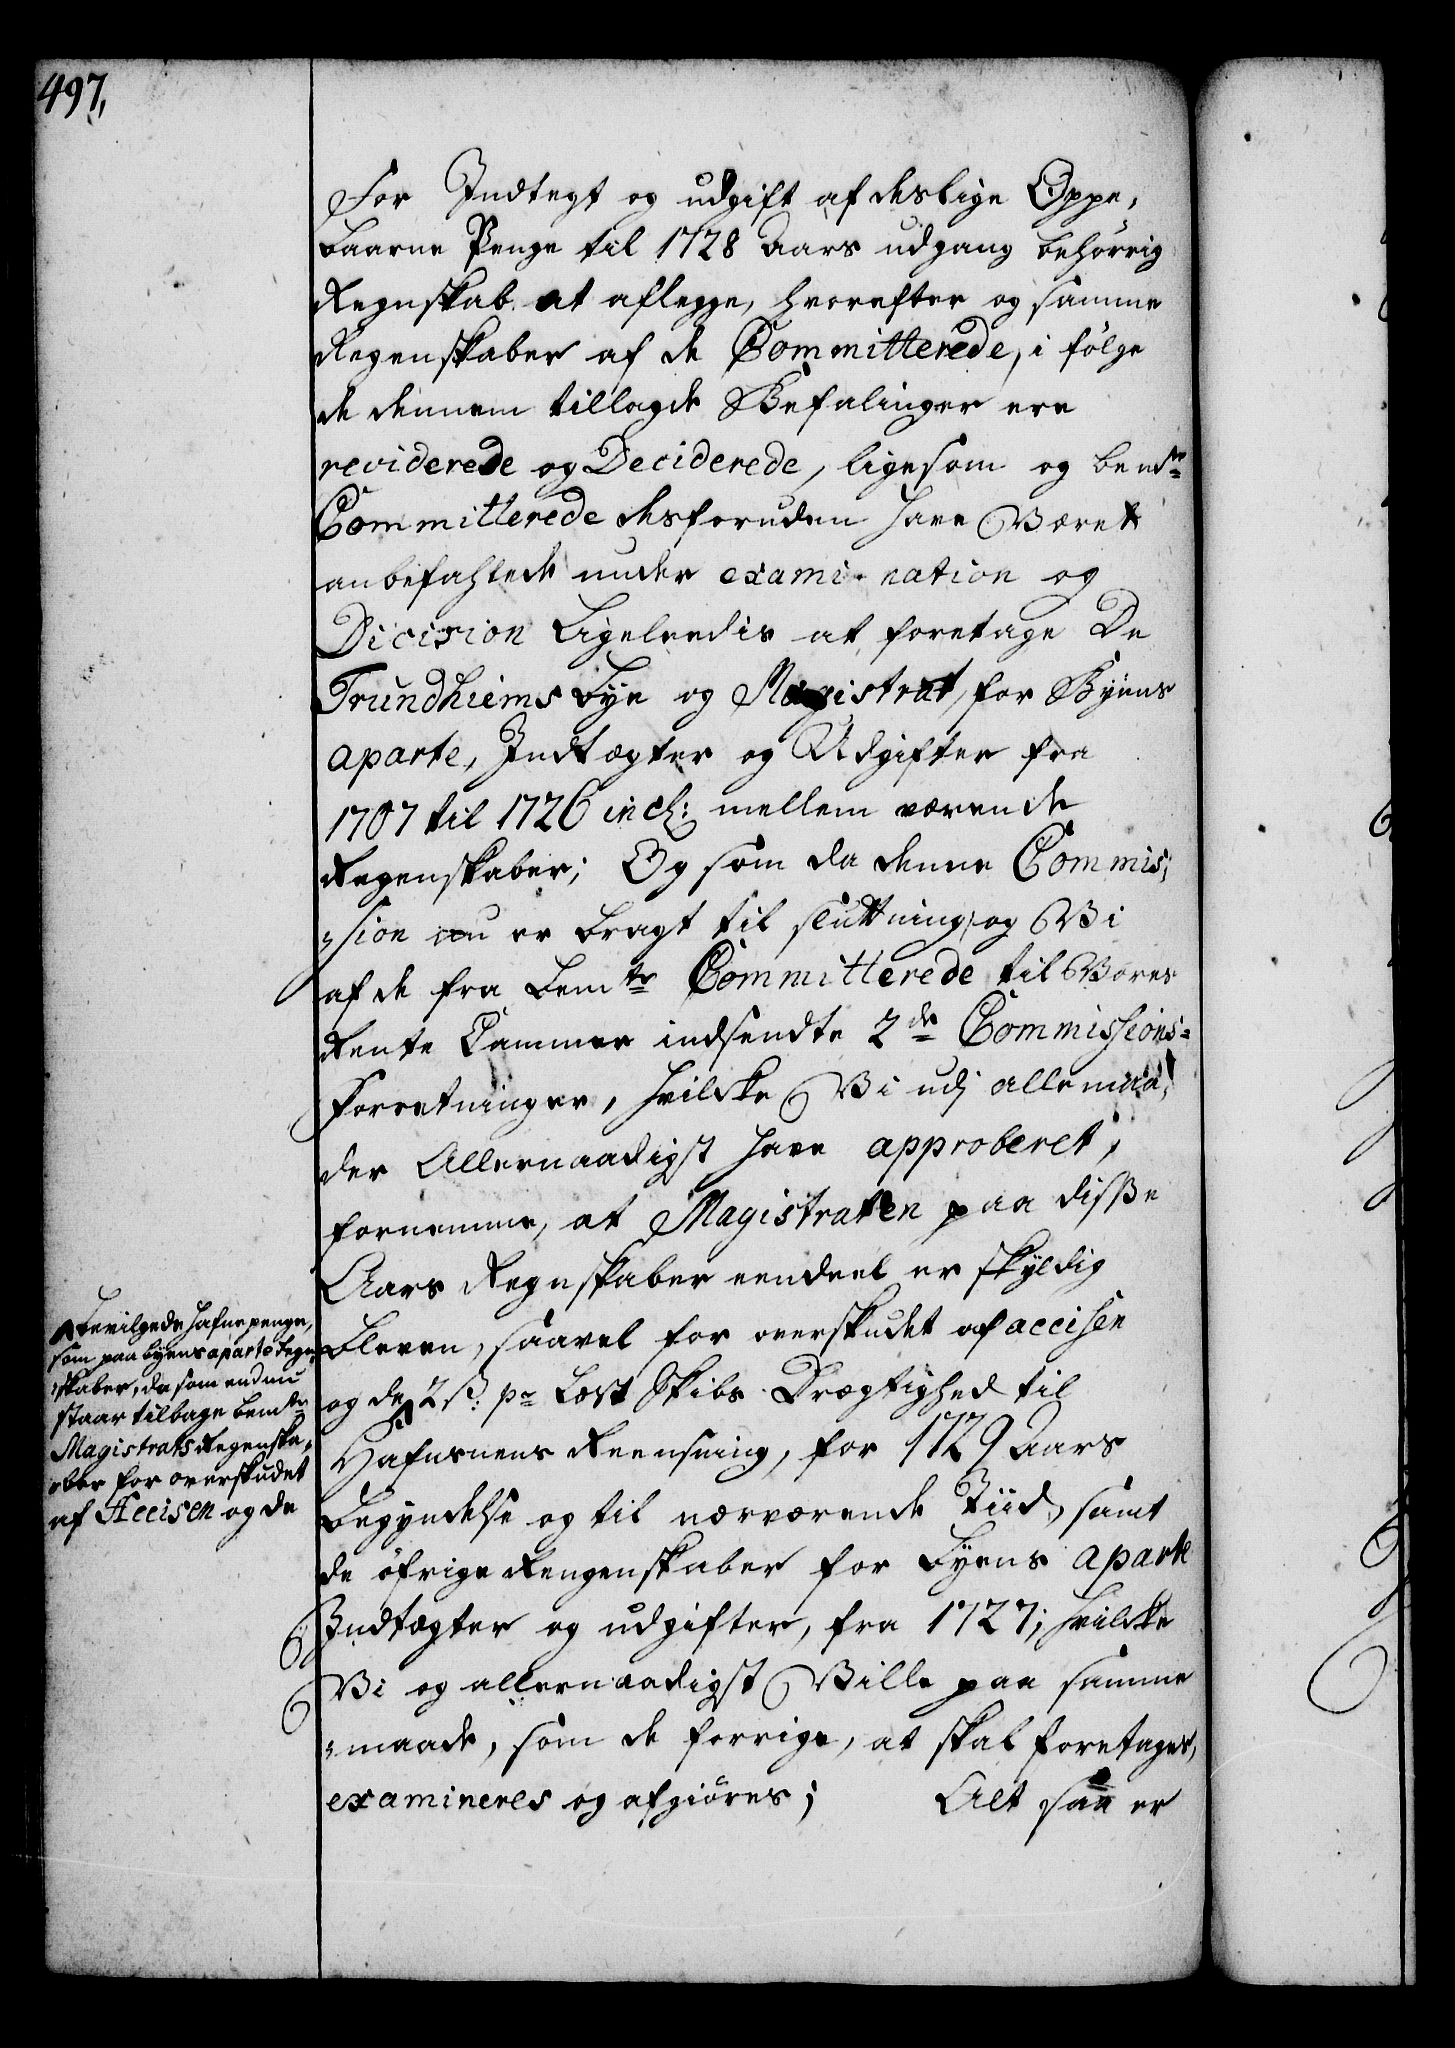 497,
For Indtegt og udgift af deslige Oppe,
baarne Penge til 1728 Aars udgang behørrig
Regnskab at aflegge, hvorefter og samme
Regenskaber af de Committerede, i følge
de dennem tillagde Befalinger ere
reviderede og Deciderede, ligesom og bemte
Committerede desforuden have Været
anbefahlede under exami-nation og
Dicision Ligeleedis at foretage De
Trundhiems Bye og Magistrat, for Byens
aparte, Indtægter og Udgifter fra
1707 til 1726 incl: mellem værende
Regenskaber; Og som da denne Commis,
,sion nu er bragt til sluttning, og Vi
af de fra bemte Committerede til Vores
Rente Cammer indsendte 2de Commissions=
forretninger, hvilcke Vi udj alle maa,
der Allernaadigst have approberet,
fornemme, at Magistraten paa disse
Aars Regnskaber eendeel er skyldig
bleven, saavel for overskudet af accisen
og de 2 ß: pr Lest Skibs Drægtighed til
Hafnsnens Reensning, for 1729 Aars
Begyndelse og til nærværende Tiid, samt
de øfrige Rengenskaber for Byens aparte
Indtægter og udgifter, fra 1727; hvilcke
Vi og allernaadigst Ville paa samme
,maade, som de forrige, at skal foretages,
examineres og afgiøres; Alt saa er
bevilgede hafnepenge,
som paa byens aparte Regn,
,skaber, da som endnu
staar tilbage bemte
Magistrats Regenska,
,ber for overskudet
af Accisen og de